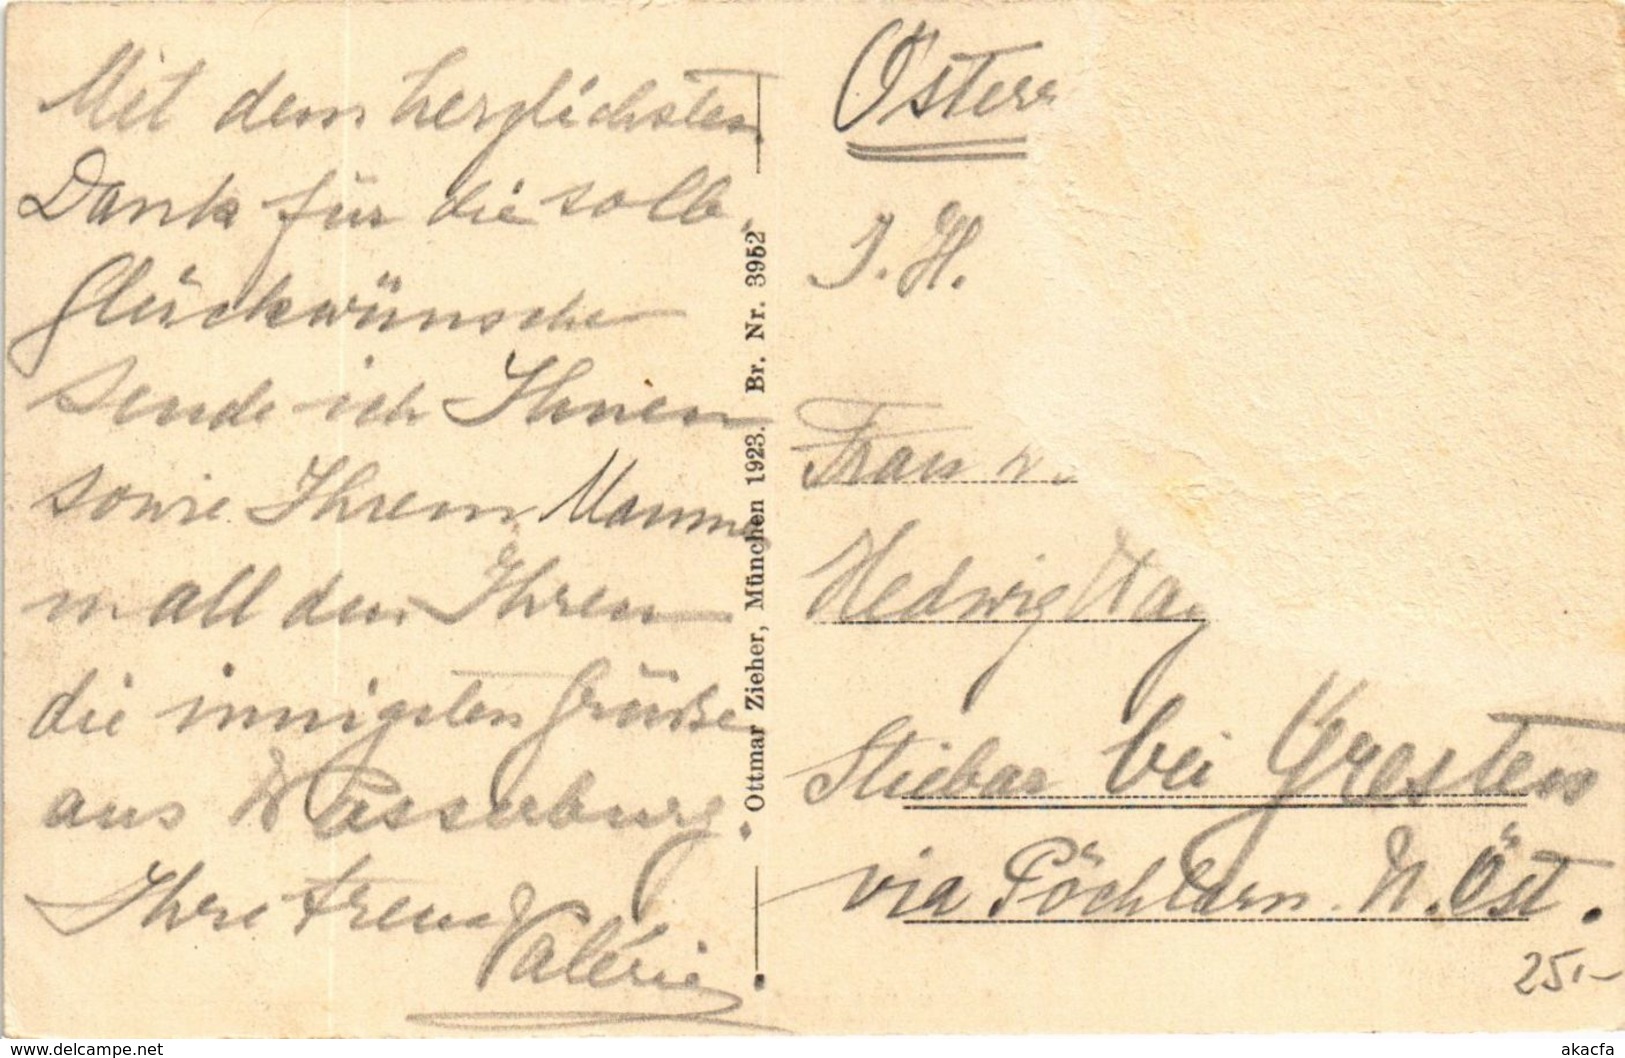 Mit dem herzlichsten
Dank für die
Glückwünsche
sende ich Ihnen
sowie Ihrem Manne
u. all den Ihren
die innigsten Grüße
aus Wasserburg.
Ihre treue
Valérie
Ottmar Zieher, München 1923. Br. Nr. 3952
Österr
I. H.
Frau v.
Hedwig Hay
Stiebar bei Gresten
via Pöchlarn. N. Öst.
25.–
akacfa